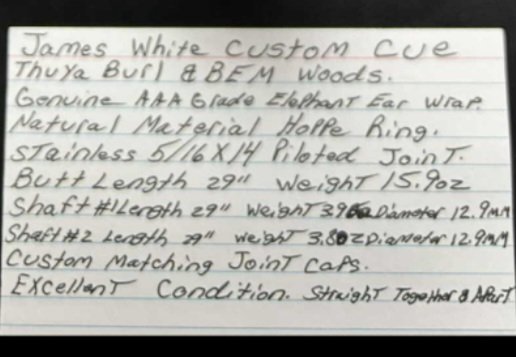 James White Custom Cue
Thuya Burl & BEM Woods.
Genuine AAA Grade Elephant Ear Wrap.
Natural Material Hoppe Ring.
Stainless 5/16 X 14 Piloted Joint.
Butt Length 29" Weight 15.9oz
Shaft #1 Length 29" Weight 3.9oz Diameter 12.9mm
Shaft #2 Length 29" Weight 3.8oz Diameter 12.9mm
Custom Matching Joint Caps.
Excellent Condition. Straight Together & Apart